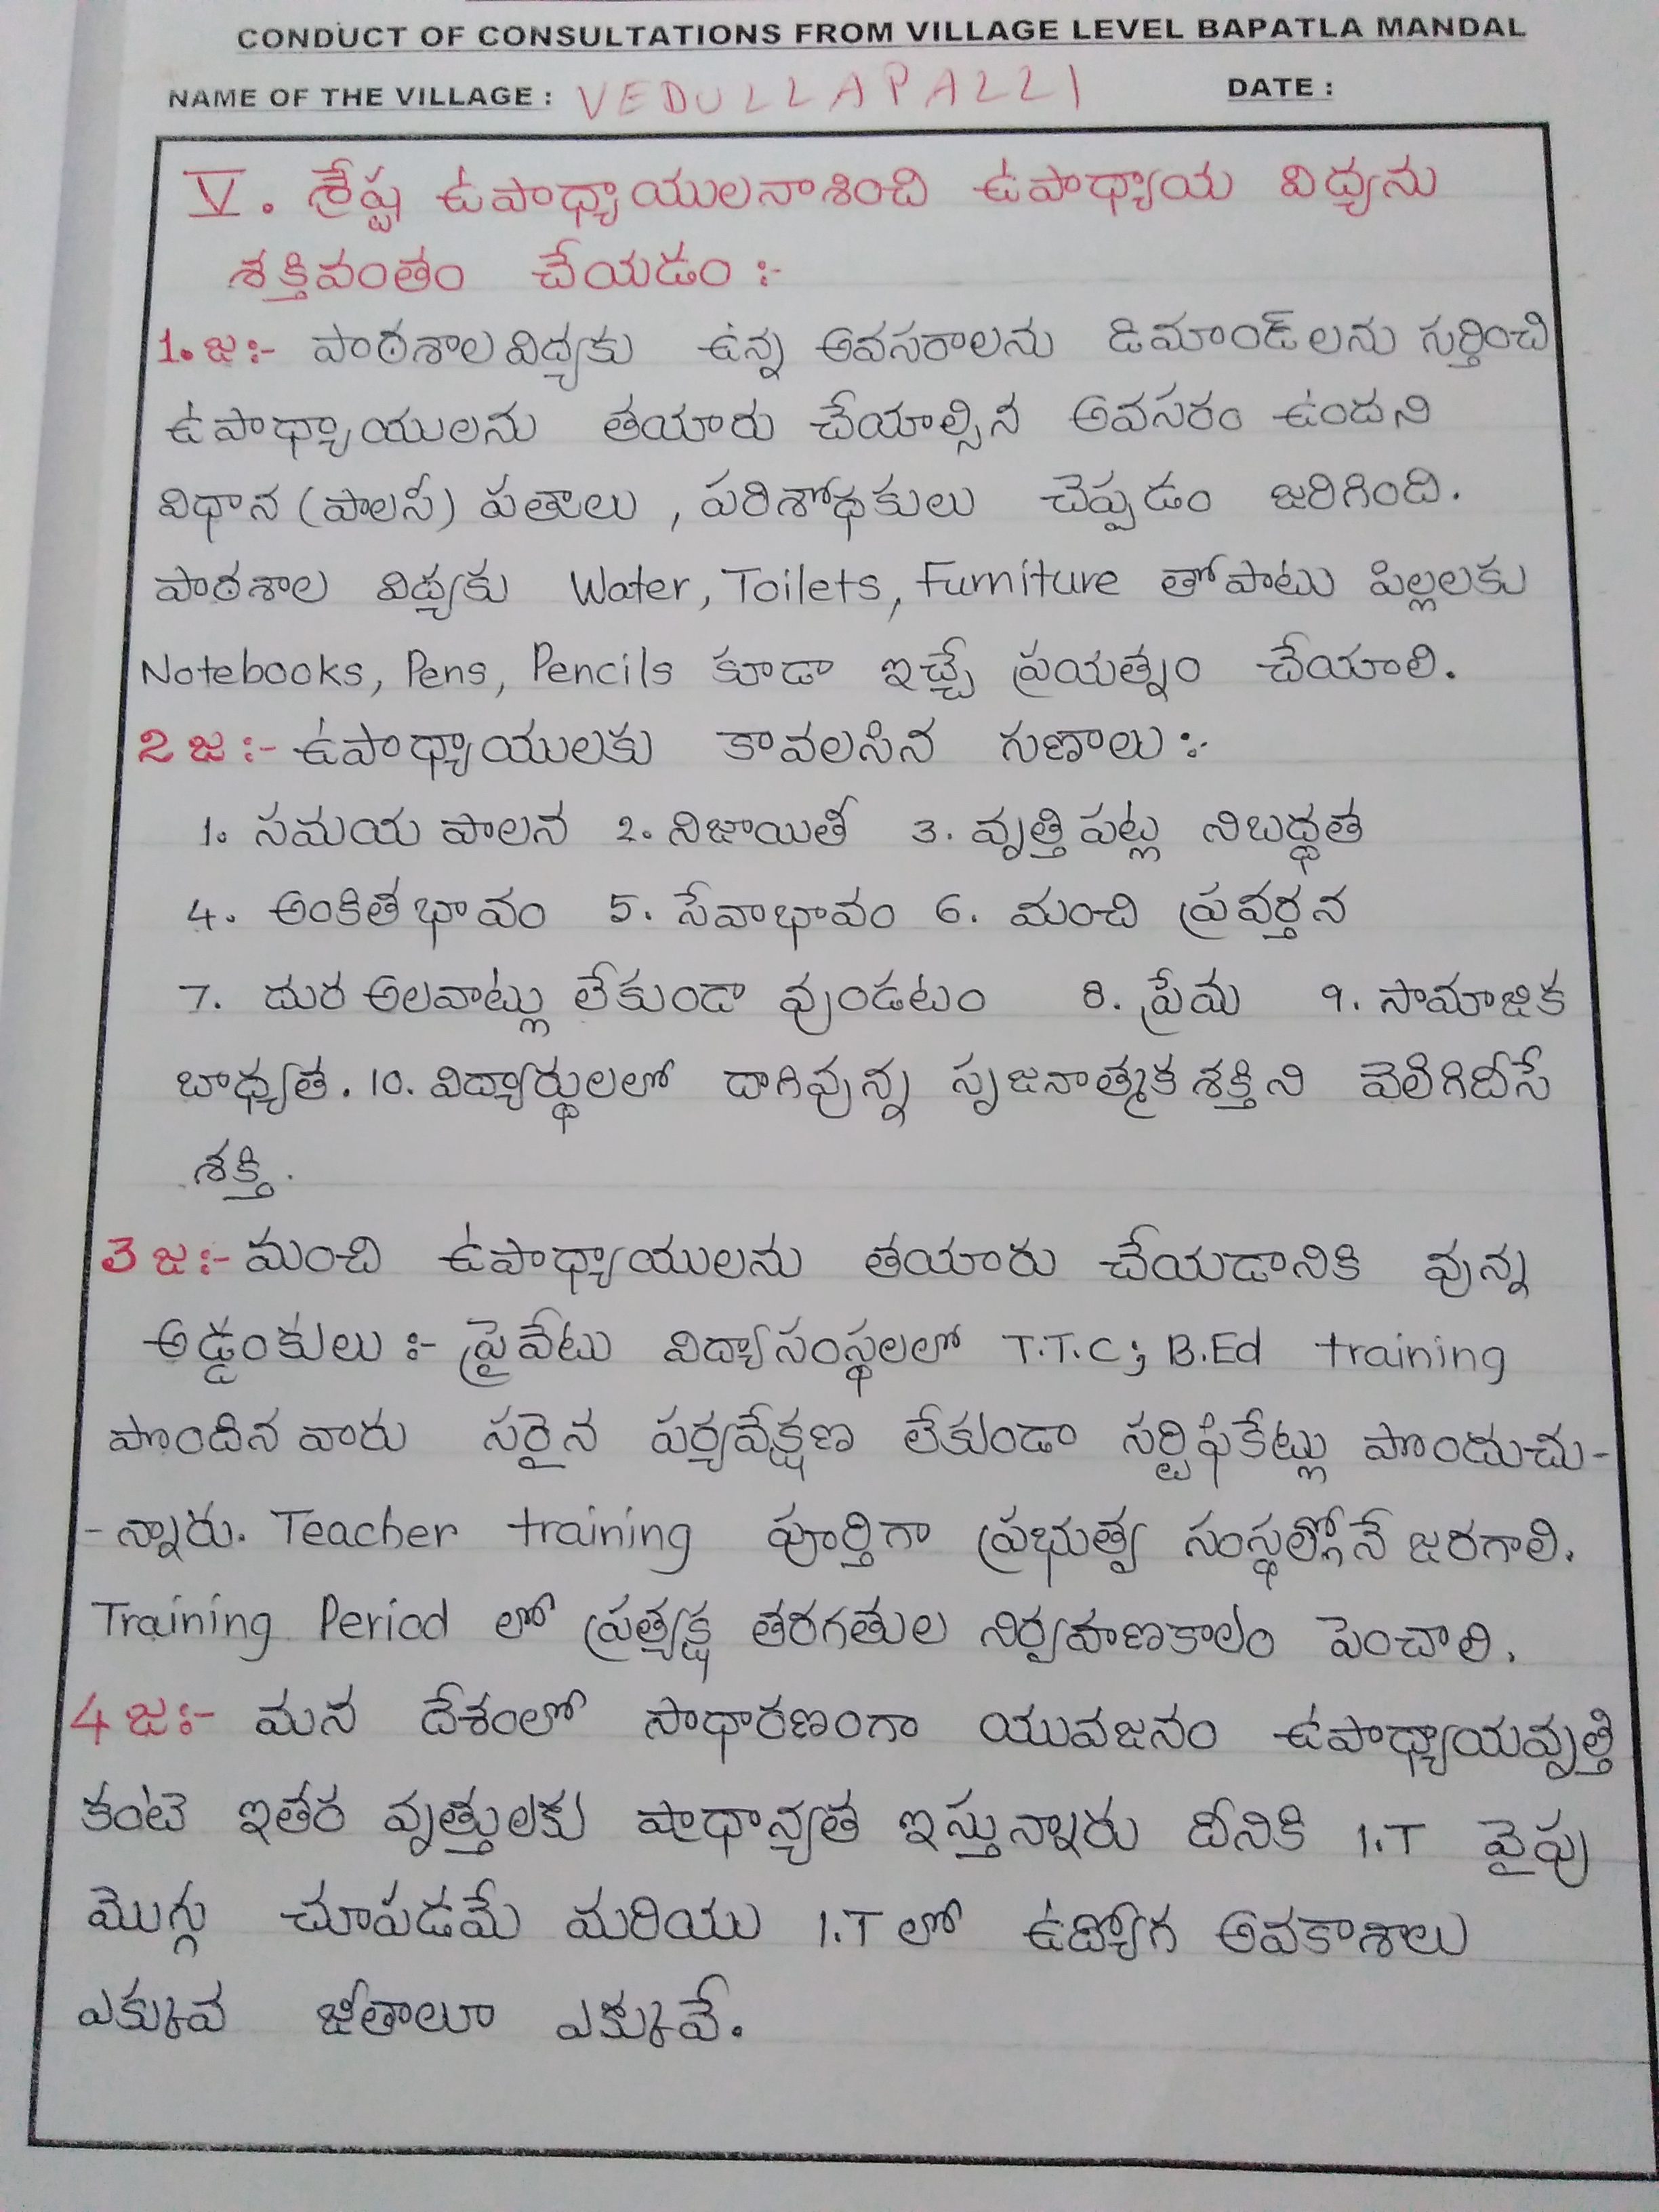 CONDUCT OF CONSULTATIONS FROM VILLAGE LEVEL BAPATLA MANDAL
NAME OF THE VILLAGE : VEDULLAPALLI DATE :
V. శ్రేష్ట ఉపాధ్యాయులనాశించి ఉపాధ్యాయ విద్యను
శక్తివంతం చేయడం :-
1.జ:- పాఠశాల విద్యకు ఉన్న అవసరాలను డిమాండ్‌లను సర్తించి
ఉపాధ్యాయులను తయారు చేయాల్సిన అవసరం ఉందని
విధాన (పాలసీ) పత్రాలు , పరిశోధకులు చెప్పడం జరిగింది.
పాఠశాల విద్యకు Water, Toilets, Furniture తోపాటు పిల్లలకు
Notebooks, Pens, Pencils కూడా ఇచ్చే ప్రయత్నం చేయాలి.
2 జ :- ఉపాధ్యాయులకు కావలసిన గుణాలు :-
1. సమయ పాలన 2. నిజాయితీ 3. వృత్తి పట్ల నిబద్ధత
4. అంకిత భావం 5. సేవాభావం 6. మంచి ప్రవర్తన
7. దుర అలవాట్లు లేకుండా వుండటం 8. ప్రేమ 9. సామాజిక
బాధ్యత. 10. విద్యార్థులలో దాగివున్న సృజనాత్మక శక్తిని వెలిగిదీసే
శక్తి.
3 జ:- మంచి ఉపాధ్యాయులను తయారు చేయడానికి వున్న
అడ్డంకులు :- ప్రైవేటు విద్యాసంస్థలలో T.T.C; B.Ed training
పొందిన వారు సరైన పర్యవేక్షణ లేకుండా సర్టిఫికేట్లు పొందుచు-
-న్నారు. Teacher training పూర్తిగా ప్రభుత్వ సంస్థల్లోనే జరగాలి.
Training Period లో ప్రత్యక్ష తరగతుల నిర్వహణకాలం పెంచాలి.
4 జ:- మన దేశంలో సాధారణంగా యువజనం ఉపాధ్యాయవృత్తి
కంటె ఇతర వృత్తులకు ప్రాధాన్యత ఇస్తున్నారు దీనికి I.T వైపు
మొగ్గు చూపడమే మరియు I.T లో ఉద్యోగ అవకాశాలు
ఎక్కువ జీతాలూ ఎక్కువే.